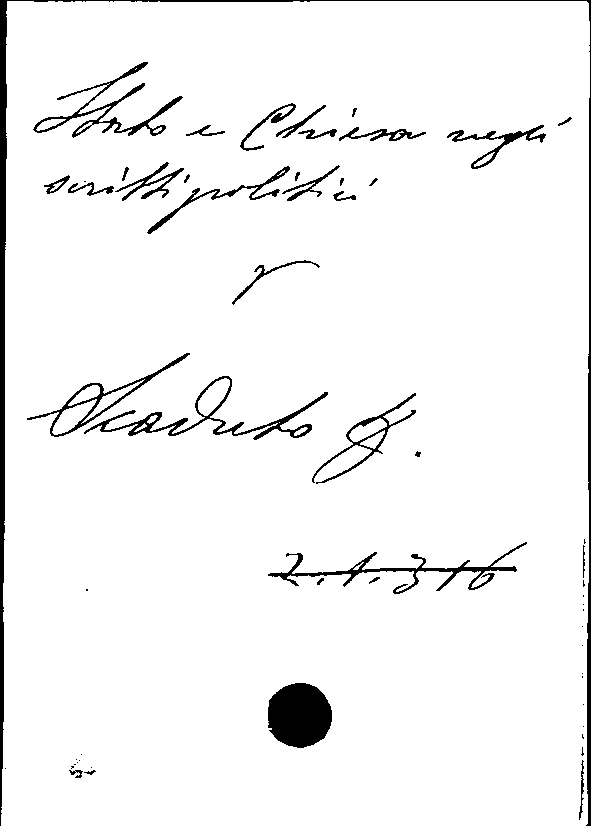 Stato e Chiesa negli
scritti politici
v
Scaduto F.
2.1.316